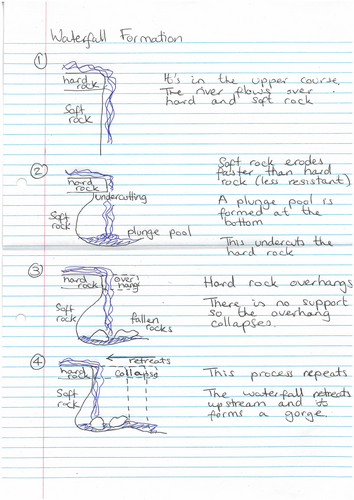 Waterfall Formation
1
hard
rock
Soft
rock
It's in the upper course.
The river flows over
hard and soft rock
2
hard
rock
undercutting
Soft
rock
plunge pool
Soft rock erodes
faster than hard
rock (less resistant)
A plunge pool is
formed at the
bottom
This undercuts the
hard rock
3
hard
rock
over
hang
Soft
rock
fallen
rocks
Hard rock overhangs
There is no support
so the overhang
collapses.
4
retreats
hard
rock
collapse
Soft
rock
This process repeats.
The waterfall retreats
upstream and
forms a gorge.